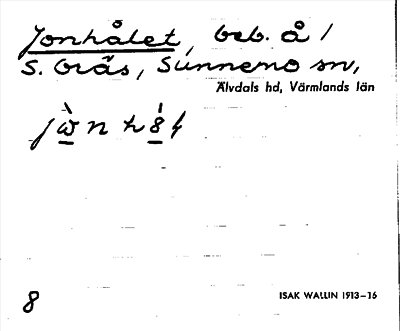 Jonhålet, beb. å /
S. Gräs, Sunnemo sn,
Älvdals hd, Värmlands län
8
ISAK WALLIN 1913–16